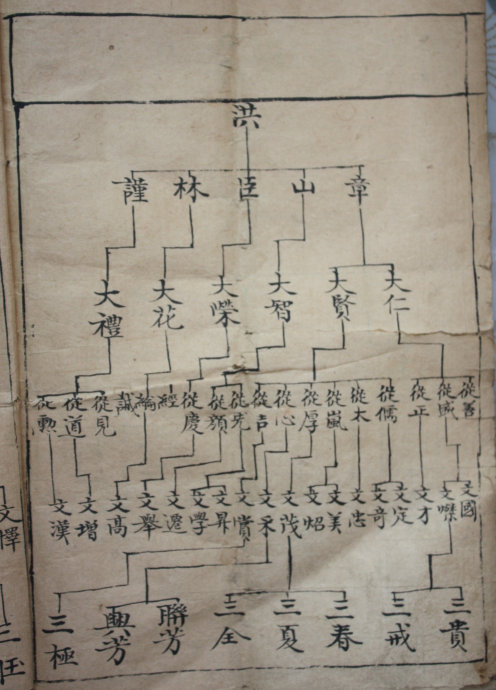 洪
章 山 臣 林 謹
大仁 大賢 大智 大榮 大花 大禮
從善 從盛 從正 從儒 從太 從嵐 從厚 從心 從吉 從先 從額 從慶 經 綸 誠 從見 從道 從勲
文國 文傑 文才 文定 文奇 文忠 文美 文炤 文茂 文采 文賞 文昇 文學 文選 文舉 文高 文增 文漢
三貴 三戒 三春 三夏 三全 聯芳 興芳 三極
文懌
三